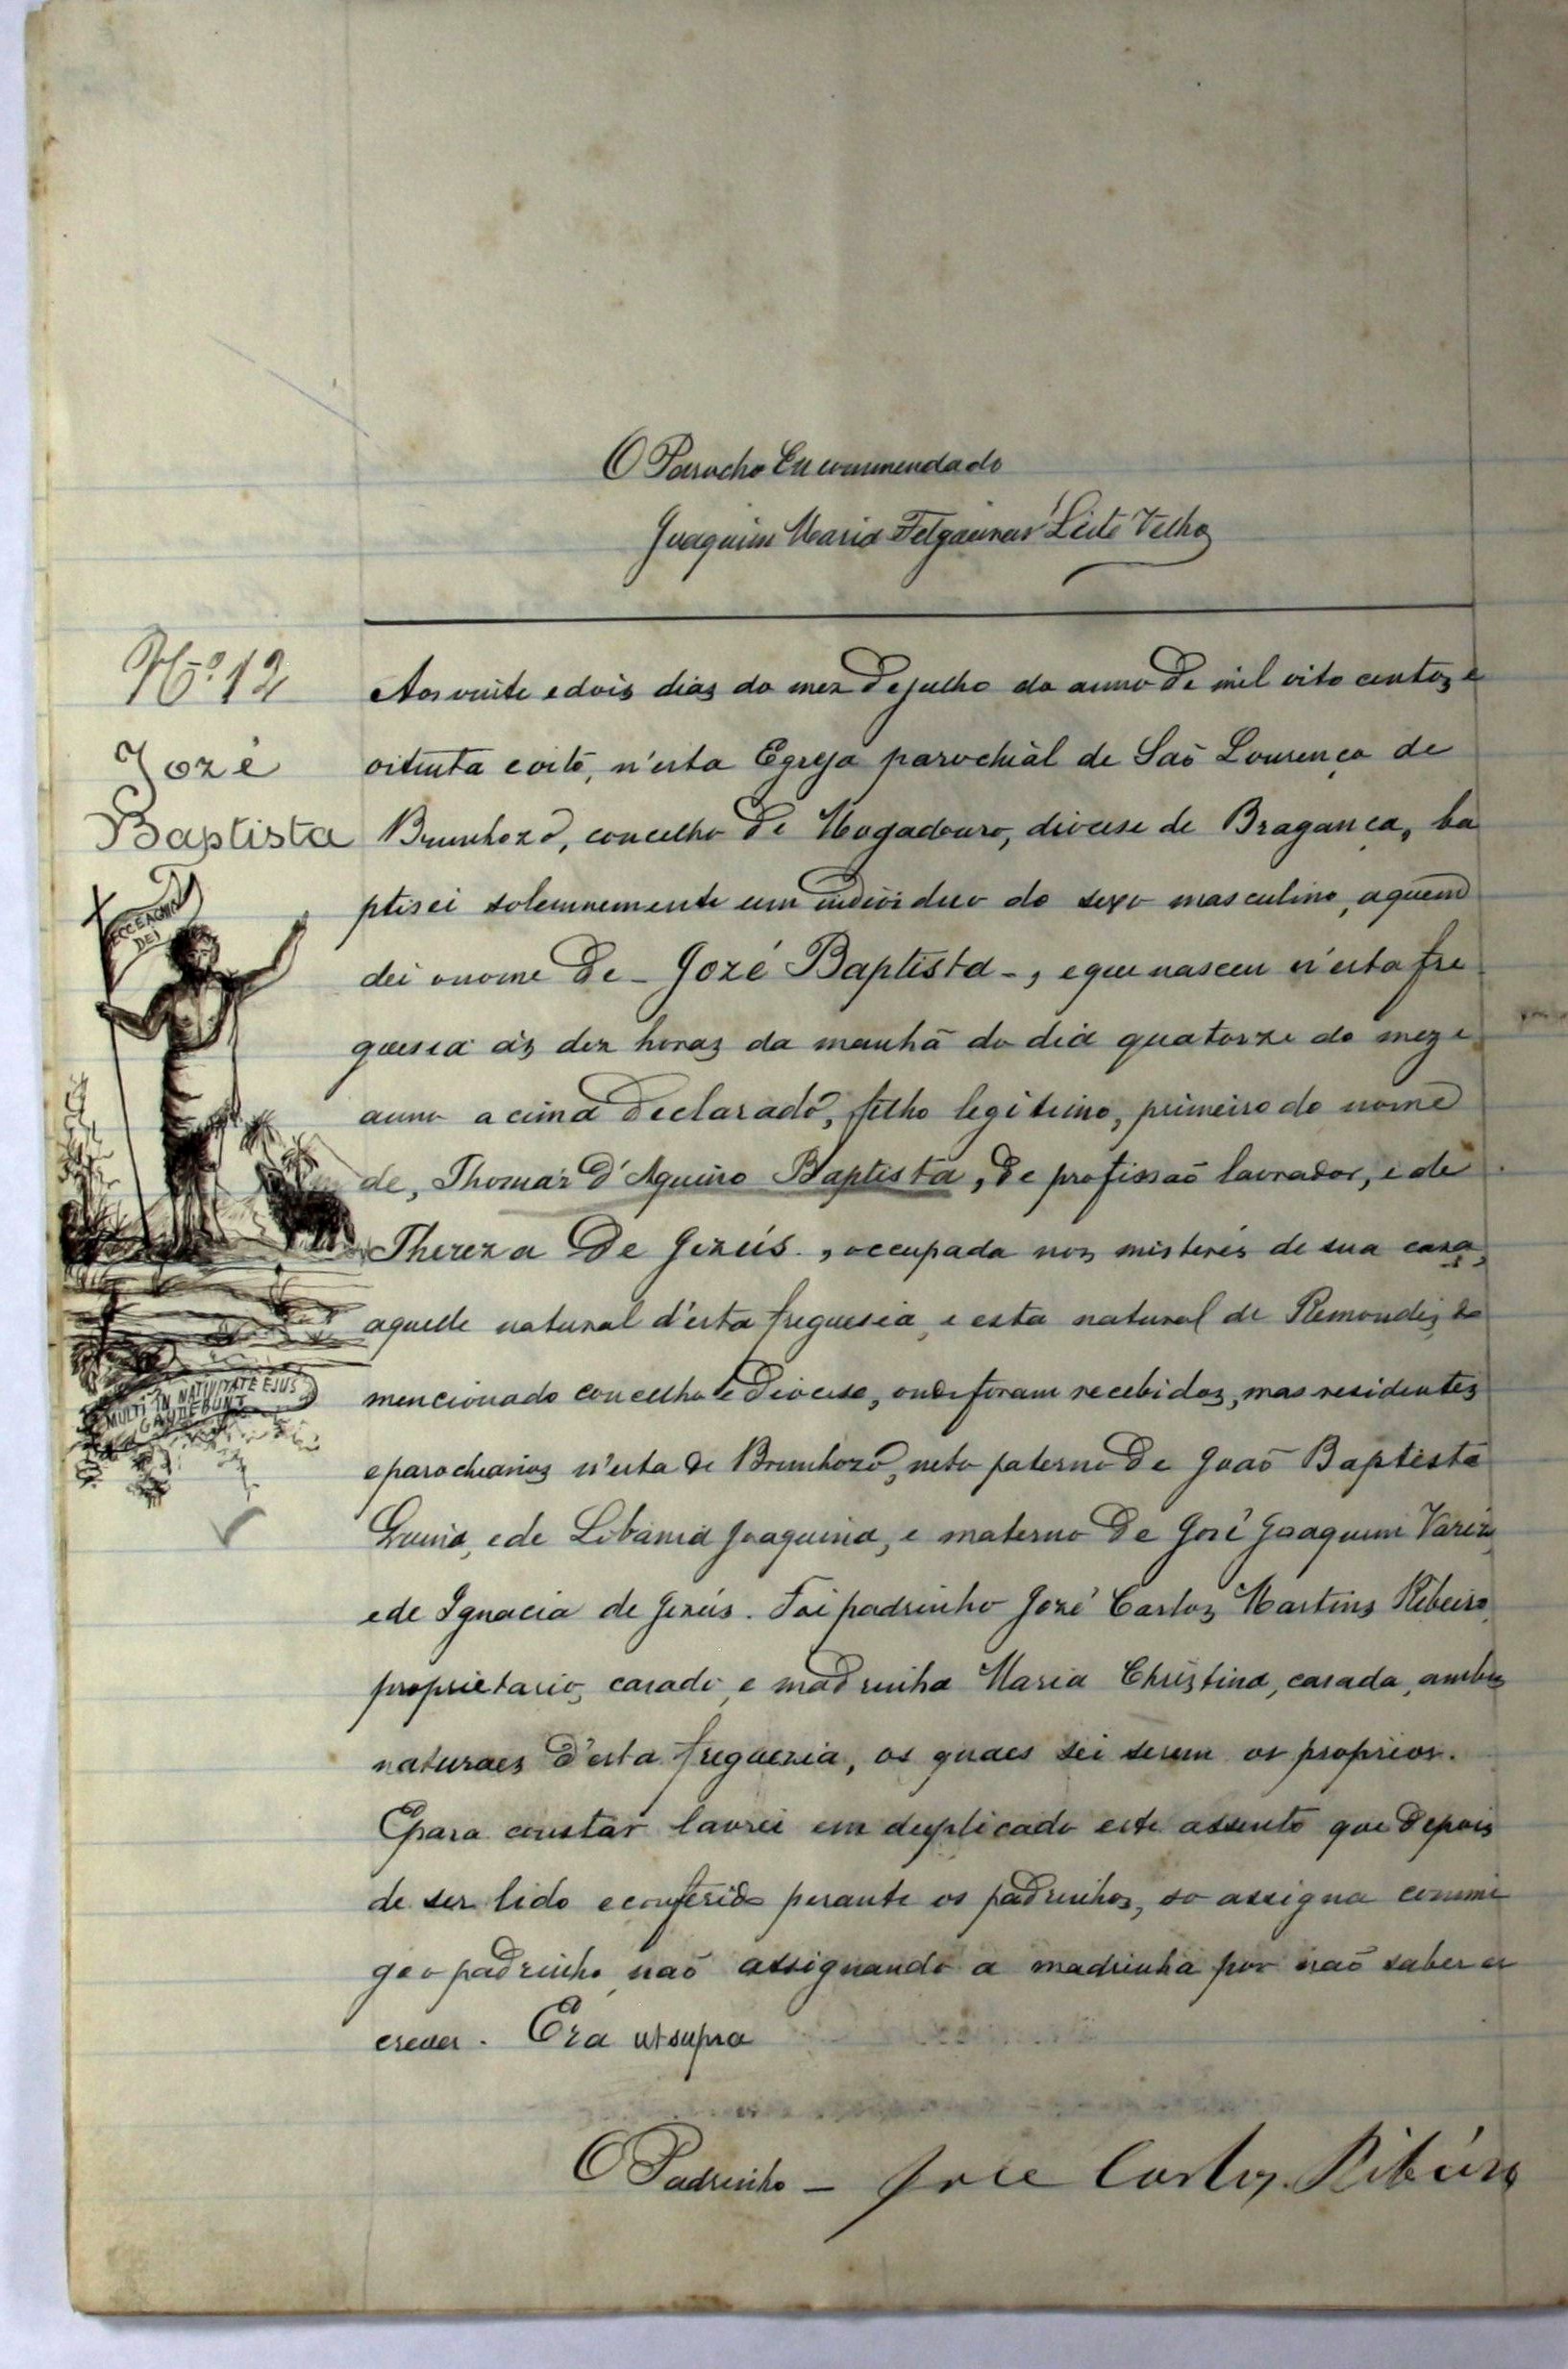 O Parocho Encommendado
Joaquim Maria Felgueiras Leite Velho
Nº 12
Jozé
Baptista
ECCE AGNUS
DEI
MULTI IN NATIVITATE EJUS
GAUDEBUNT
Aos vinte e dois dias do mez de julho do anno de mil oito centos e
oitenta e oito, n'esta Egreja parochial de Saõ Lourenço de
Brunhozo, concelho de Mogadouro, diocese de Bragança, ba
ptisei solemnemente um individuo do sexo masculino, a quem
dei o nome de - Jozé Baptista -, e que nasceu n'esta fre
guesia ás dez horas da manhã do dia quatorze do mez e
anno acima declarado, filho legitimo, primeiro do nome
de, Thomaz d'Aquino Baptista, de profissaõ lavrador, e de
Thereza de Jezús, occupada nos misteres de sua caza,
aquelle natural d'esta freguesia, e esta natural de Remondes, do
mencionado concelho e diocese, onde foram recebidos, mas residentes
e parochianos n'esta de Brunhozo, neto paterno de Joaõ Baptista
e de Libania Joaquina, e materno de José Joaquim Variz,
e de Ignacia de Jezús. Foi padrinho Jozé Carlos Martins Ribeiro,
proprietario, casado, e madrinha Maria Christina, casada, ambos
naturaes d'esta freguezia, os quaes sei serem os proprios.
E para constar lavrei em duplicado este assento que depois
de ser lido e conferido perante os padrinhos, so assigna commi
go o padrinho, naõ assignando a madrinha por naõ saber es
crever. Era ut supra
O Padrinho - Jose Carlos Ribeiro